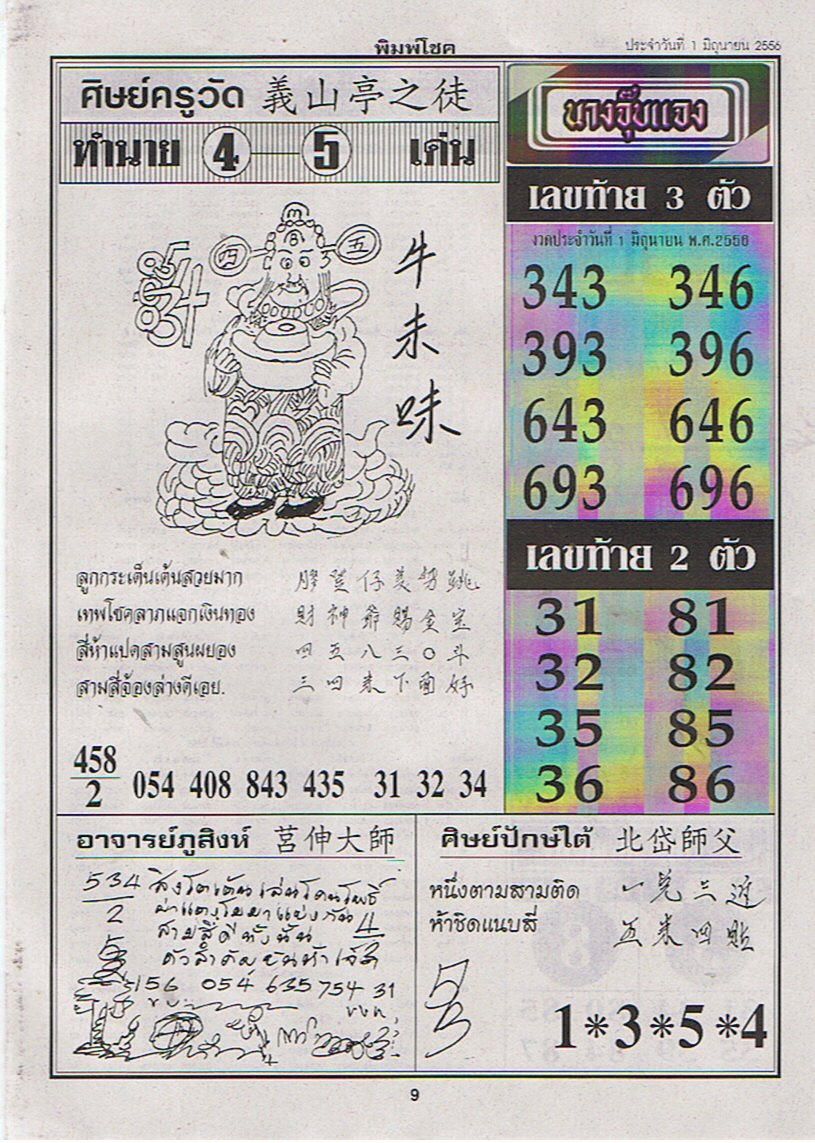 พิมพ์โชค
ประจำวันที่ 1 มิถุนายน 2556
ศิษย์ครูวัด 義山亭之徒
ทำนาย 4 — 5 เด่น
四 五
牛
未
味
ลูกกระเด็นเต้นสวยมาก
เทพโชคลาภแจกเงินทอง 財神爺賜金宝
สี่ห้าแปดสามสูนผยอง 四五八三〇斗
สามสี่จ้องล่างดีเอย. 三四来下面好
458
2
054 408 843 435 31 32 34
นางจุ๊บแจง
เลขท้าย 3 ตัว
งวดประจำวันที่ 1 มิถุนายน พ.ศ.2556
343 346
393 396
643 646
693 696
เลขท้าย 2 ตัว
31 81
32 82
35 85
36 86
อาจารย์ภูสิงห์ 莒伸大師
534
2
สามสี่
156 054 635 754 31
ศิษย์ปักษ์ใต้ 北岱師父
หนึ่งตามสามติด
ห้าชิดแนบสี่ 五来四貼
1*3*5*4
9